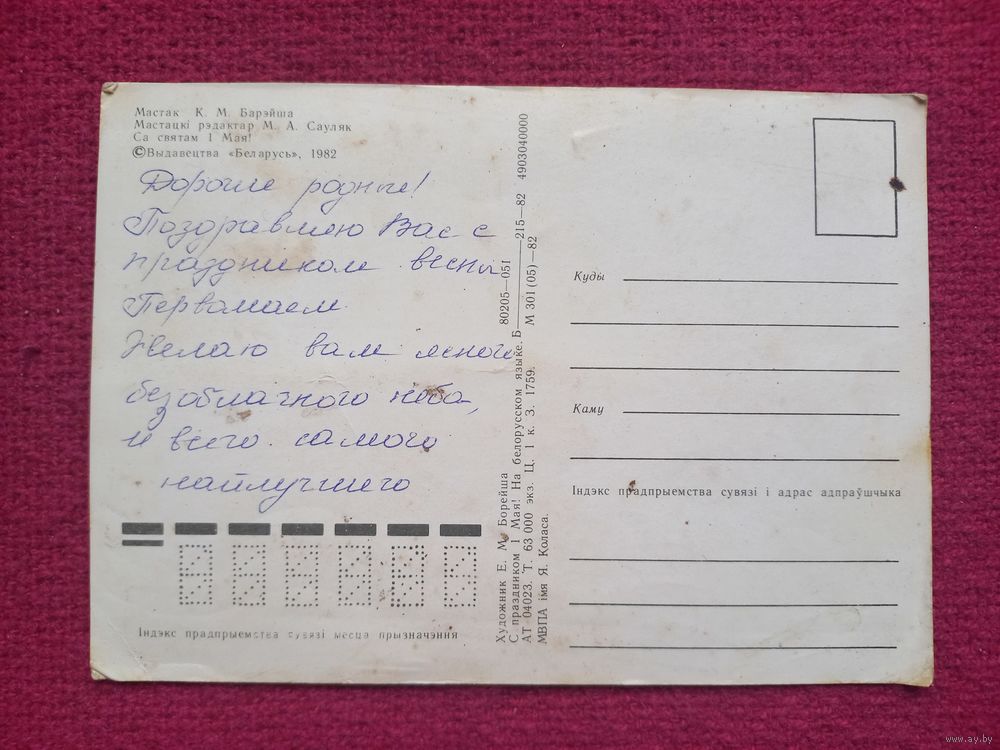 Мастак К. М. Барэйша
Мастацкі рэдактар М. А. Сауляк
Са святам 1 Мая!
©Выдавецтва «Беларусь», 1982
Дорогие родные!
Поздравляю Вас с
праздником весны
Первомаем.
Желаю вам ясного
безоблачного неба,
и всего самого
наилучшего
Індэкс прадпрыемства сувязі месца прызначэння
Художник Е. М. Борейша 80205—051
С праздником 1 Мая! На белорусском языке. Б———215—82 4903040000
АТ 04023. Т. 63 000 экз. Ц. 1 к. З. 1759. М 301(05)—82
МВПА імя Я. Коласа.
Куды
Каму
Індэкс прадпрыемства сувязі і адрас адпраўшчыка
www.ay.by